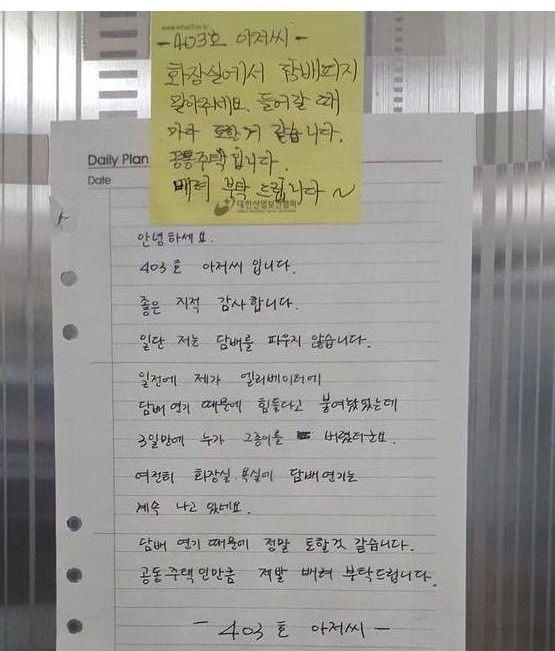 -403호 아저씨-
화장실에서 담배피지
말아주세요. 들어갈 때
마다 토할거 같습니다.
공통주택입니다.
배려 부탁 드립니다~
대한산업보건협회
Daily Plan
Date
안녕하세요.
403호 아저씨 입니다.
좋은 지적 감사합니다.
일단 저는 담배를 피우지 않습니다.
일전에 제가 엘리베이터에
담배 연기 때문에 힘들다고 붙여놨었는데
3일만에 누가 그종이를 버렸더군요.
여전히 화장실. 욕실에 담배연기는
계속 나고 있네요.
담배 연기 때문에 정말 토할것 같습니다.
공동주택인만큼 제발 배려 부탁드립니다.
- 403호 아저씨 -